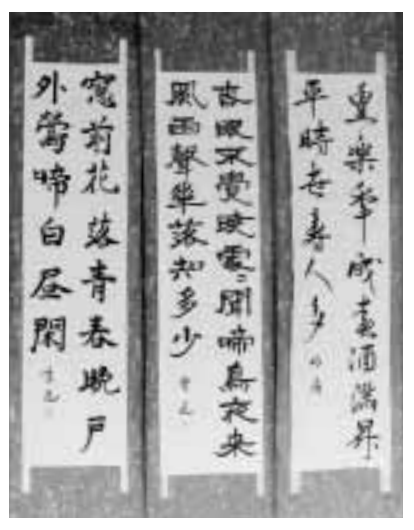 樂年成春酒滿昇
平時世壽人多
春眠不覺曉處〻聞啼鳥夜来
風雨聲花落知多少
窓前花落青春晩戸
外鶯啼白昼閑